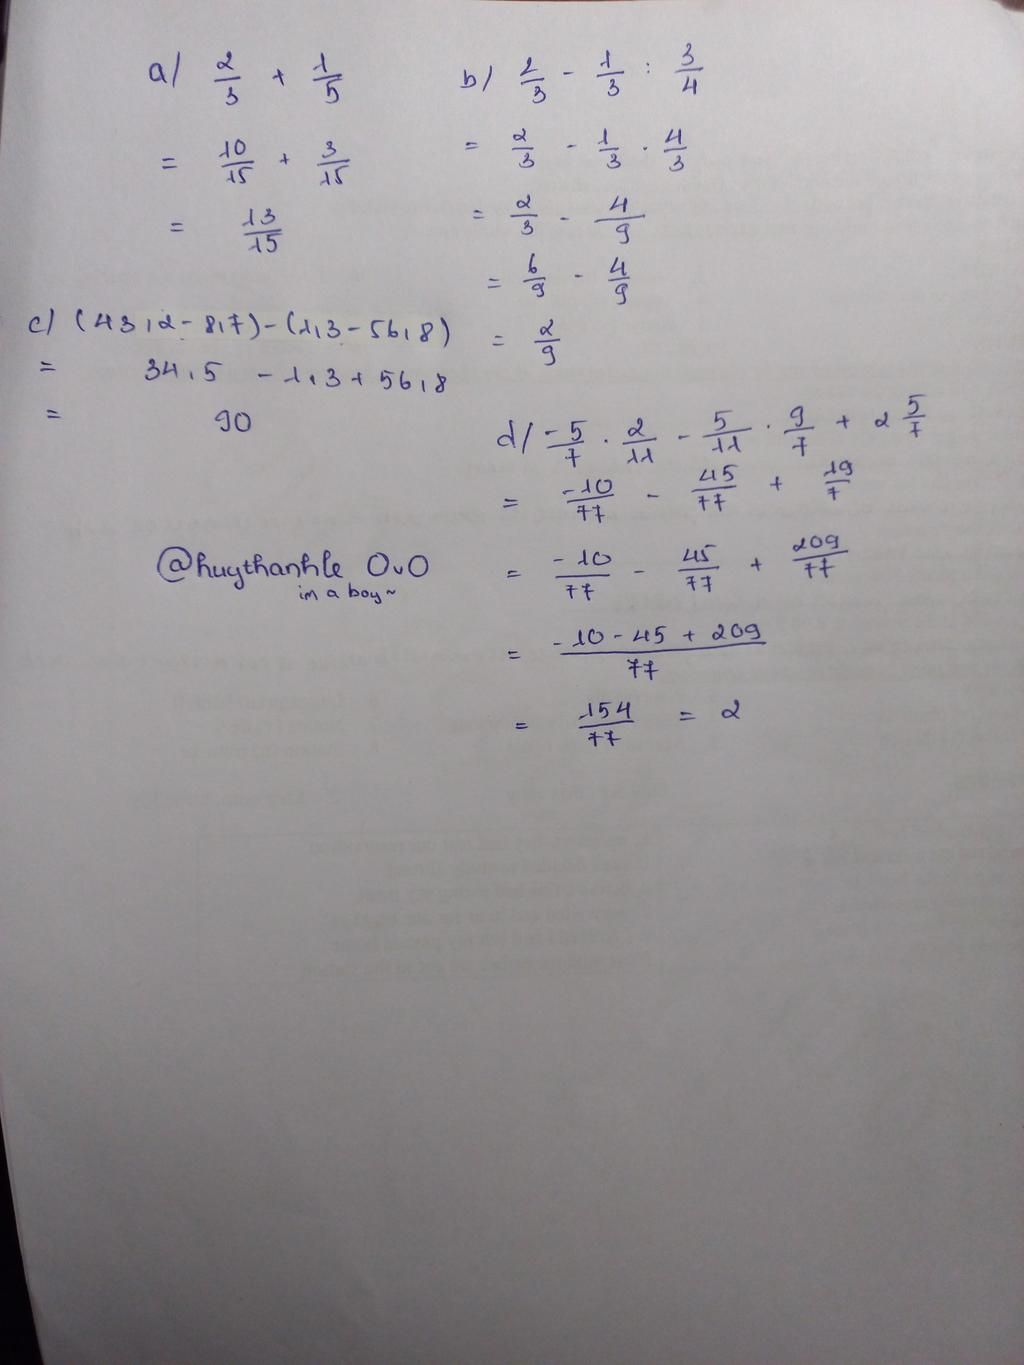 a/ 2/3 + 1/5
= 10/15 + 3/15
= 13/15
b/ 2/3 - 1/3 : 3/4
= 2/3 - 1/3 . 4/3
= 2/3 - 4/9
= 6/9 - 4/9
= 2/9
c/ (43,2 - 8,7) - (1,3 - 56,8)
= 34,5 - 1,3 + 56,8
= 90
d/ -5/7 . 2/11 - 5/11 . 9/7 + 2 5/7
= -10/77 - 45/77 + 19/7
= -10/77 - 45/77 + 209/77
= -10 - 45 + 209/77
= 154/77 = 2
@huythanhle OvO
im a boy~